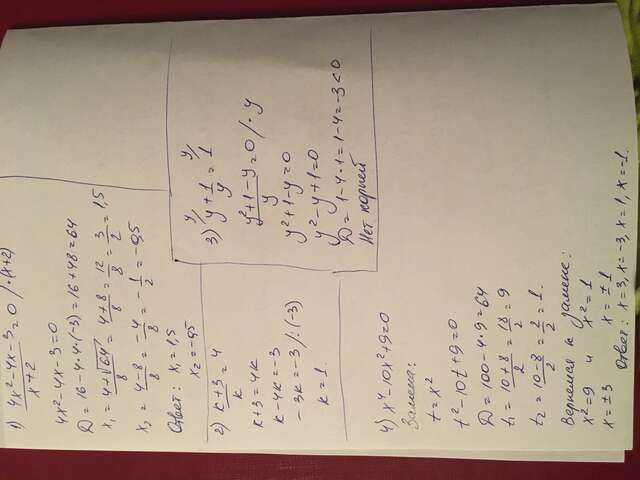 1) 4x² - 4x - 3 / x + 2 = 0 / · (x+2)
4x² - 4x - 3 = 0
D = 16 - 4 · 4 · (-3) = 16 + 48 = 64
x₁ = 4 + √64 / 8 = 4 + 8 / 8 = 12 / 8 = 3 / 2 = 1,5
x₂ = 4 - 8 / 8 = -4 / 8 = - 1 / 2 = -0,5
Ответ: x₁ = 1,5
x₂ = -0,5
2) k + 3 / k = 4
k + 3 = 4k
k - 4k = -3
-3k = -3 / : (-3)
k = 1.
3) y + 1 / y = 1
y² + 1 - y / y = 0 / · y
y² + 1 - y = 0
y² - y + 1 = 0
D = 1 - 4 · 1 = 1 - 4 = -3 < 0
Нет корней
4) x⁴ - 10x² + 9 = 0
Замена:
t = x²
t² - 10t + 9 = 0
D = 100 - 4 · 9 = 64
t₁ = 10 + 8 / 2 = 18 / 2 = 9
t₂ = 10 - 8 / 2 = 2 / 2 = 1.
Вернемся к замене:
x² = 9 и x² = 1
x = ±3 x = ±1
Ответ: x = 3, x = -3, x = 1, x = -1.